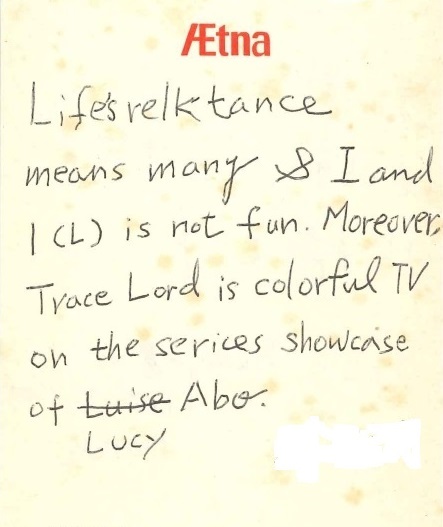 Ætna
Life's relktance
means many & I and
I (L) is not fun. Moreover,
Trace Lord is colorful TV
on the serices showcase
of Luise Abo.
Lucy